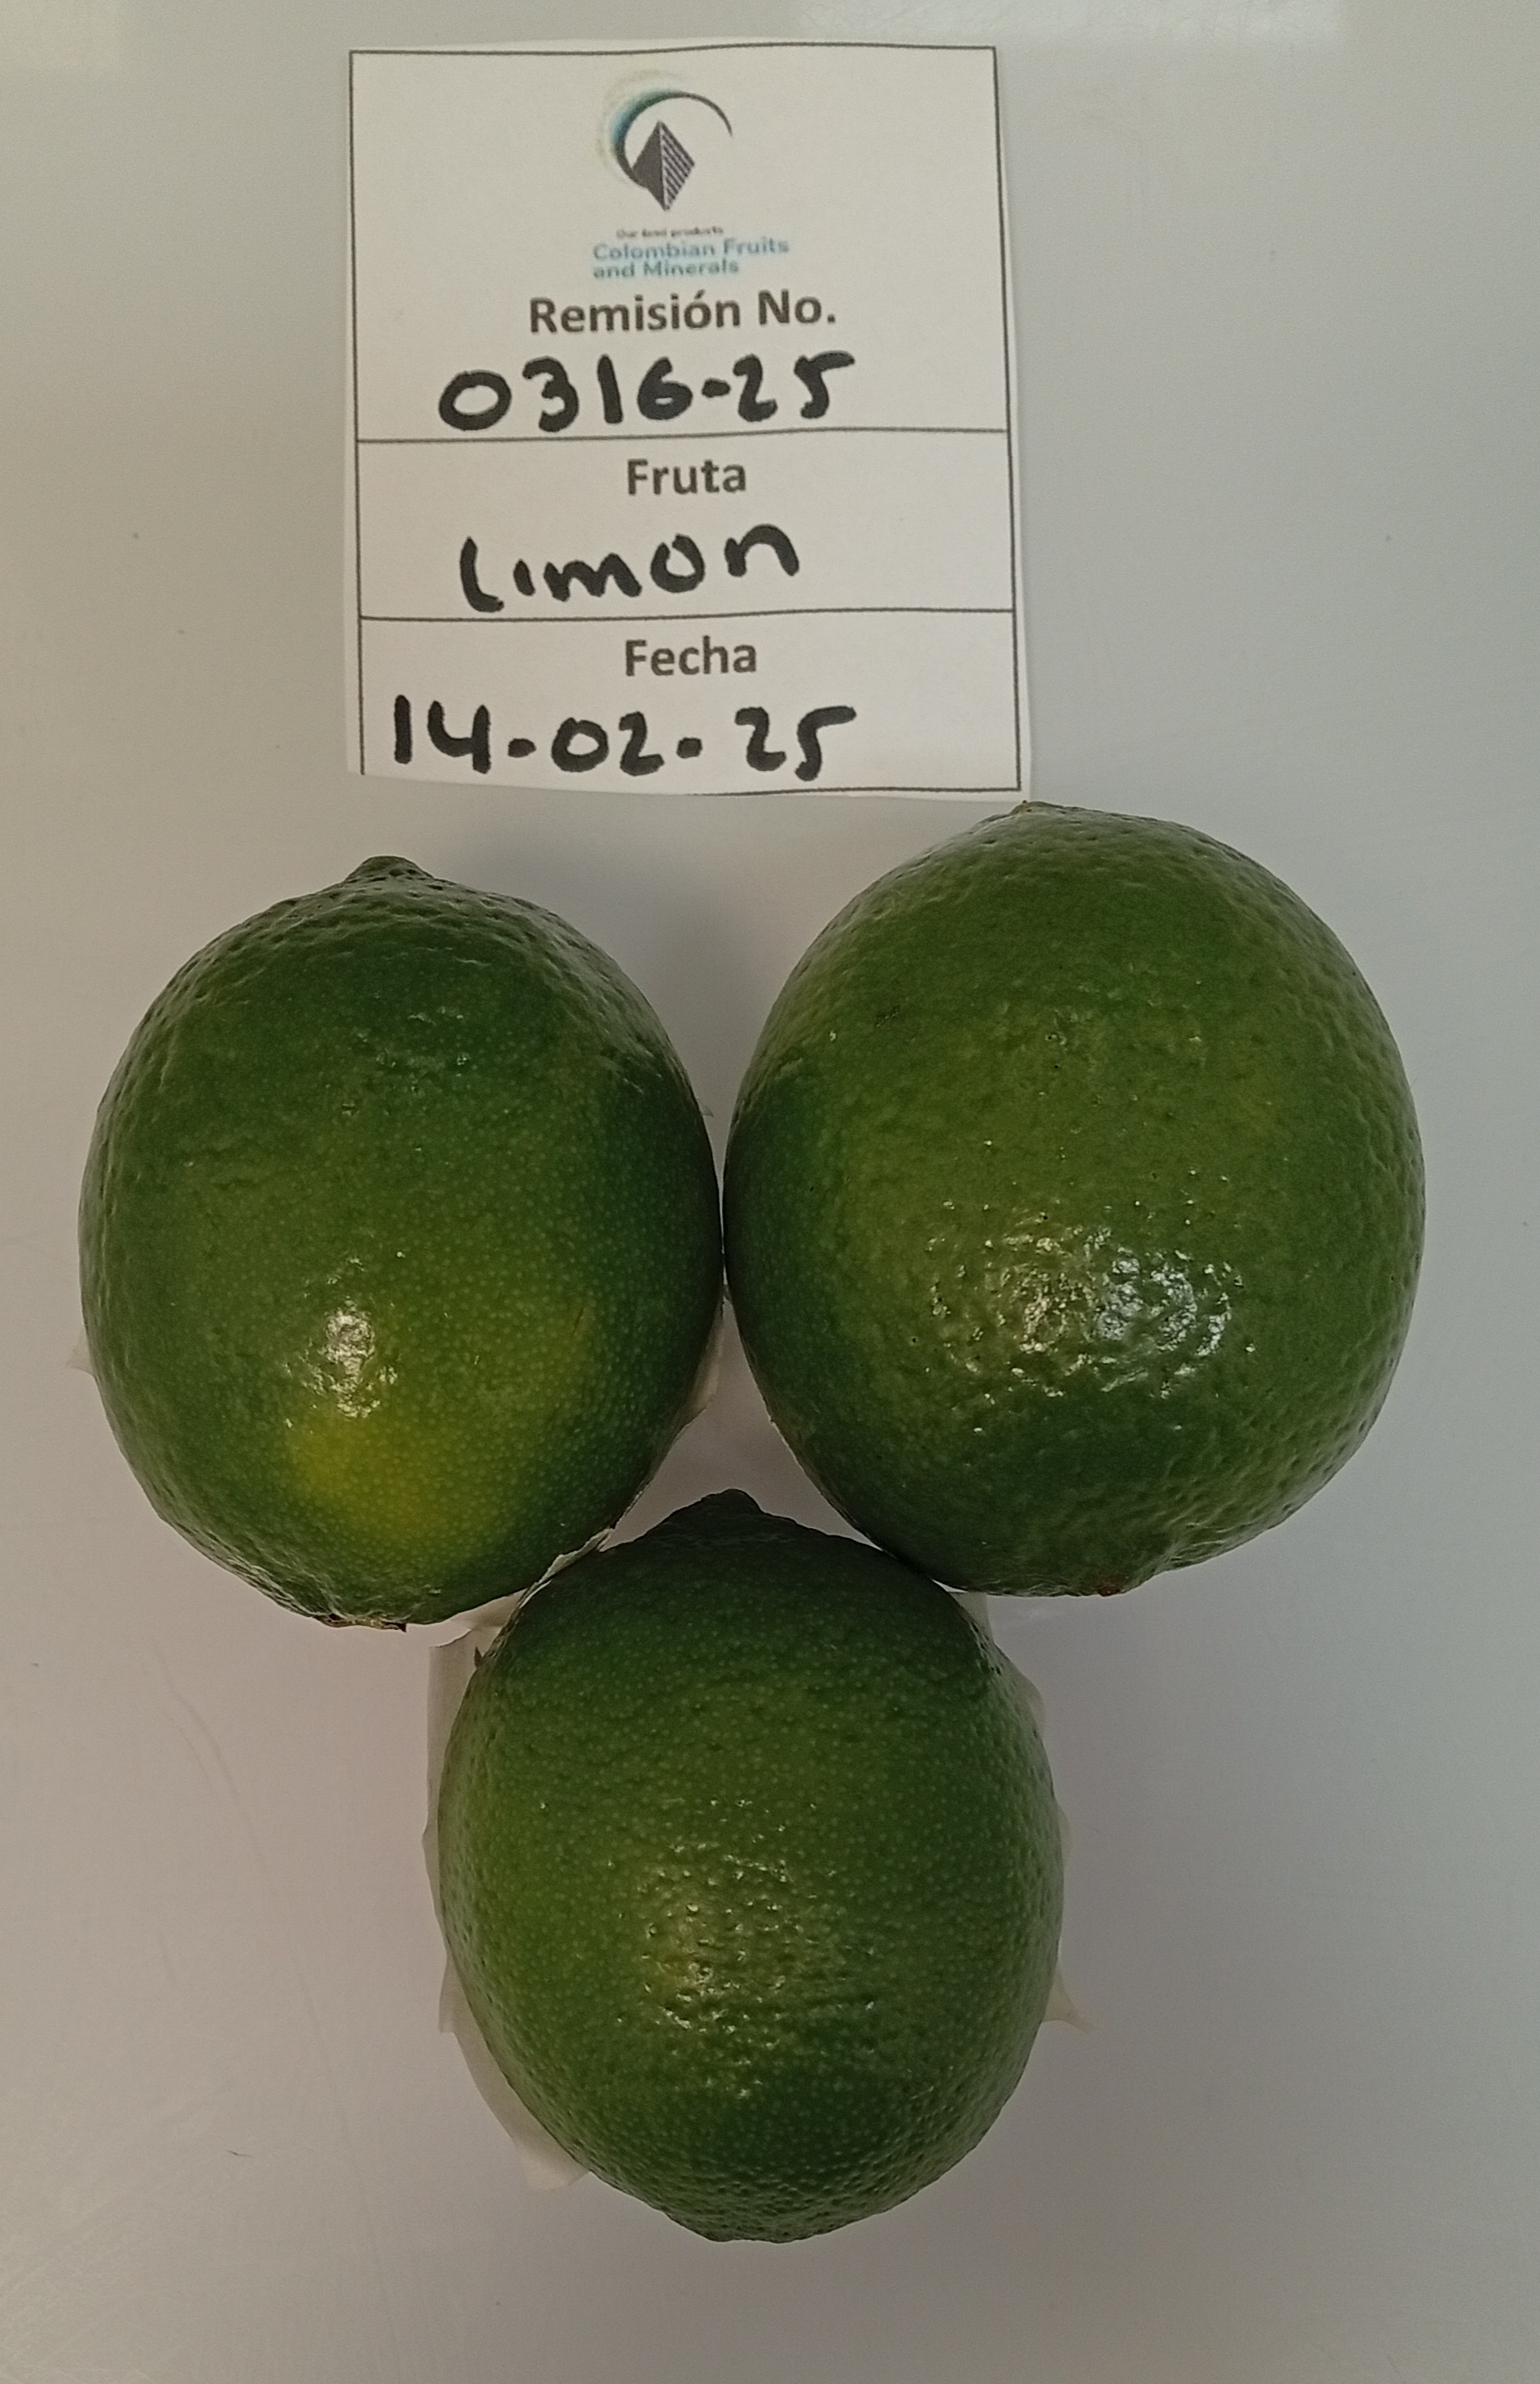 Our best products
Colombian Fruits
and Minerals
Remisión No.
0316-25
Fruta
Limon
Fecha
14-02-25